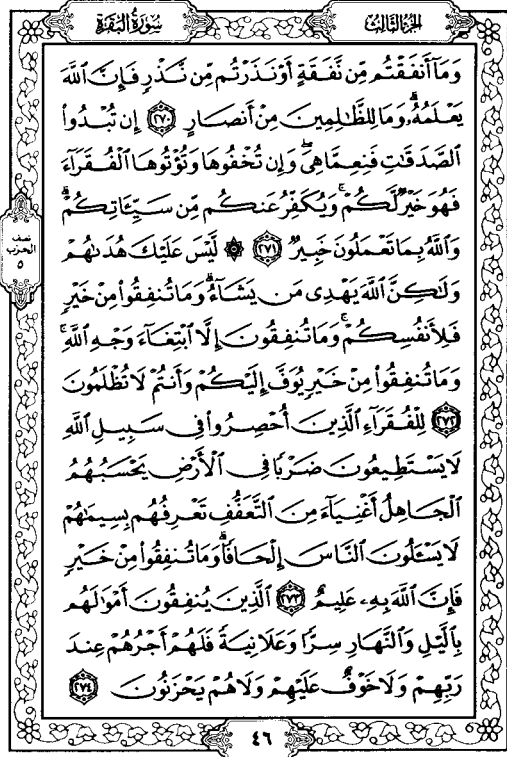 سُورَةُ البَقَرَةِ
الجُزْءُ الثَّالِثُ
وَمَآ أَنفَقْتُم مِّن نَّفَقَةٍ أَوْ نَذَرْتُم مِّن نَّذْرٍ فَإِنَّ ٱللَّهَ
يَعْلَمُهُۥ وَمَا لِلظَّـٰلِمِينَ مِنْ أَنصَارٍ ٢٧٠ إِن تُبْدُوا۟
ٱلصَّدَقَـٰتِ فَنِعِمَّا هِىَ ۖ وَإِن تُخْفُوهَا وَتُؤْتُوهَا ٱلْفُقَرَآءَ
فَهُوَ خَيْرٌ لَّكُمْ ۚ وَيُكَفِّرُ عَنكُم مِّن سَيِّـَٔاتِكُمْ ۗ
وَٱللَّهُ بِمَا تَعْمَلُونَ خَبِيرٌ ٢٧١ ۞ لَّيْسَ عَلَيْكَ هُدَىٰهُمْ
وَلَـٰكِنَّ ٱللَّهَ يَهْدِى مَن يَشَآءُ ۗ وَمَا تُنفِقُوا۟ مِنْ خَيْرٍ
فَلِأَنفُسِكُمْ ۚ وَمَا تُنفِقُونَ إِلَّا ٱبْتِغَآءَ وَجْهِ ٱللَّهِ ۚ
وَمَا تُنفِقُوا۟ مِنْ خَيْرٍ يُوَفَّ إِلَيْكُمْ وَأَنتُمْ لَا تُظْلَمُونَ
٢٧٢ لِلْفُقَرَآءِ ٱلَّذِينَ أُحْصِرُوا۟ فِى سَبِيلِ ٱللَّهِ
لَا يَسْتَطِيعُونَ ضَرْبًا فِى ٱلْأَرْضِ يَحْسَبُهُمُ
ٱلْجَاهِلُ أَغْنِيَآءَ مِنَ ٱلتَّعَفُّفِ تَعْرِفُهُم بِسِيمَـٰهُمْ
لَا يَسْـَٔلُونَ ٱلنَّاسَ إِلْحَافًا ۗ وَمَا تُنفِقُوا۟ مِنْ خَيْرٍ
فَإِنَّ ٱللَّهَ بِهِۦ عَلِيمٌ ٢٧٣ ٱلَّذِينَ يُنفِقُونَ أَمْوَٰلَهُم
بِٱلَّيْلِ وَٱلنَّهَارِ سِرًّا وَعَلَانِيَةً فَلَهُمْ أَجْرُهُمْ عِندَ
رَبِّهِمْ وَلَا خَوْفٌ عَلَيْهِمْ وَلَا هُمْ يَحْزَنُونَ ٢٧٤
نصف
الحزب
٥
٤٦